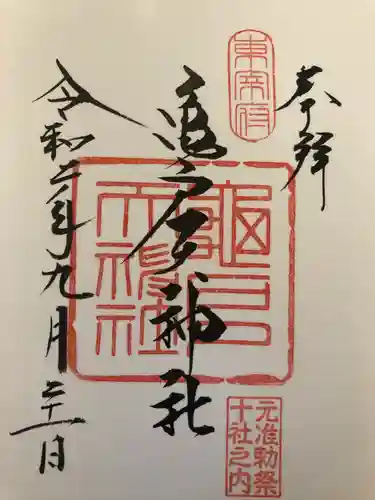 奉拝
東宰府
亀戸天神社
龜戸
天神社
令和二年九月二十一日
元准勅祭
十社之内